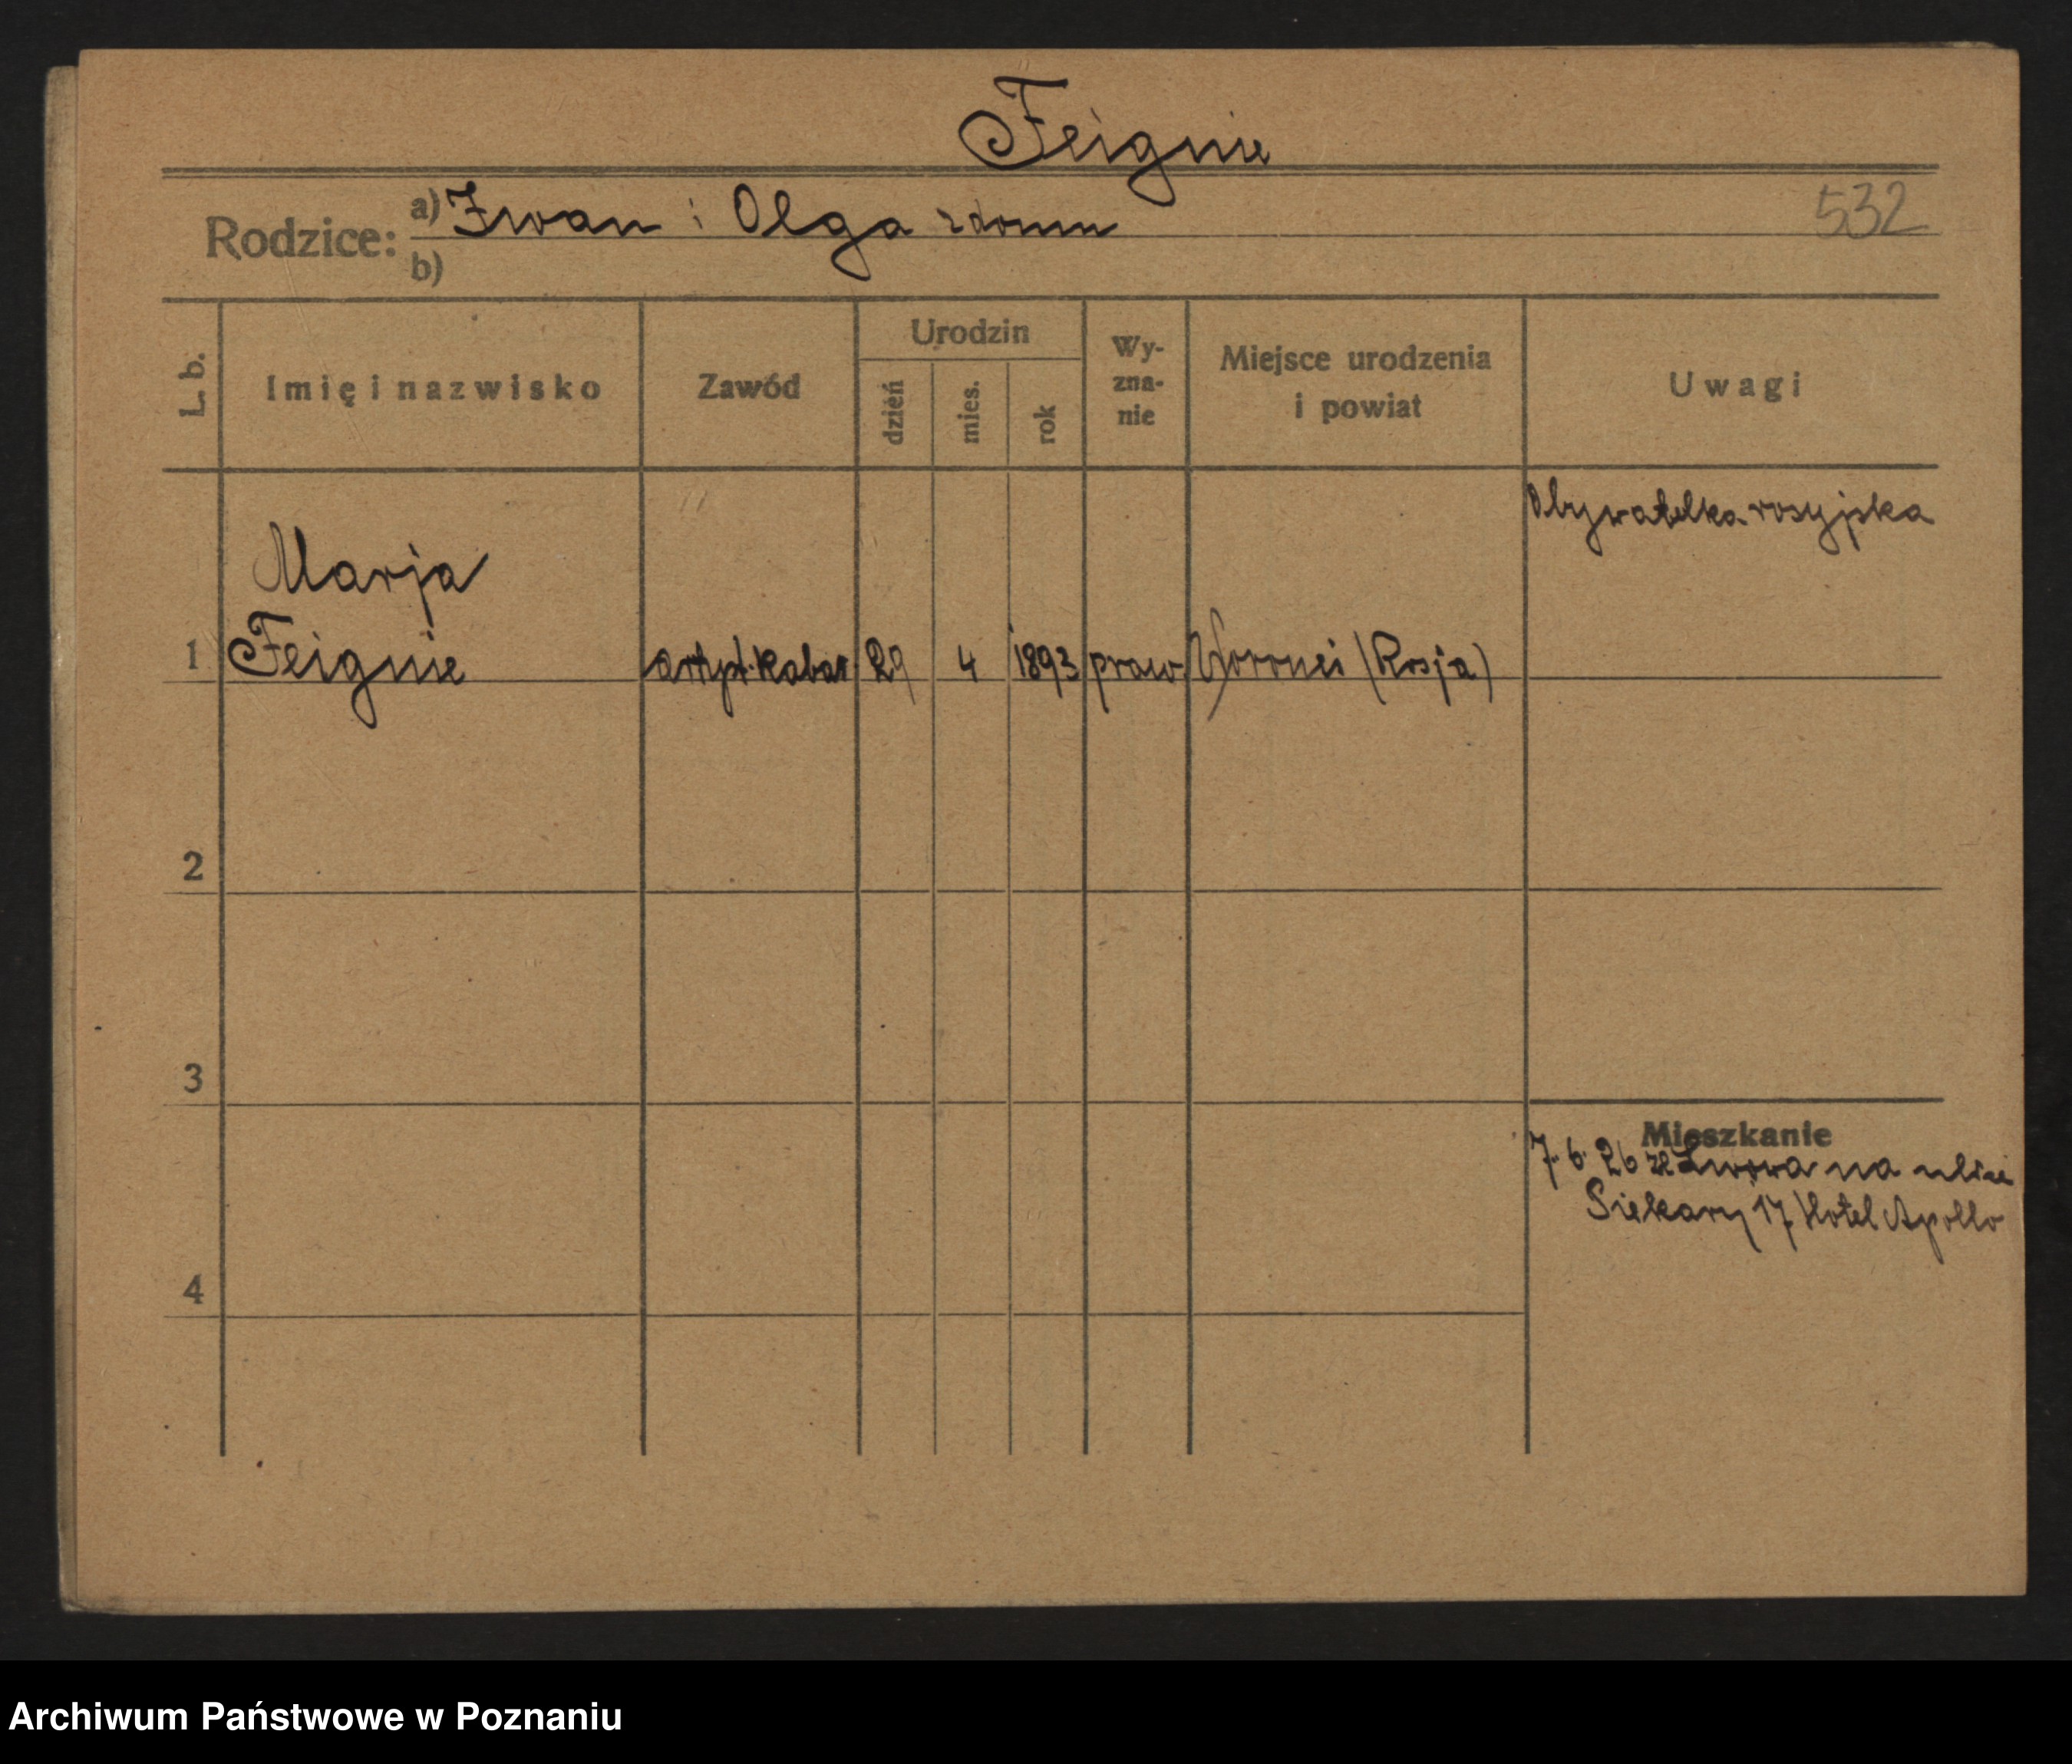 Feignie
Rodzice: a) Iwan i Olga z domu
532
b)
L. b.
Imię i nazwisko
Zawód
Urodzin
dzień
mies.
rok
Wy-
zna-
nie
Miejsce urodzenia
i powiat
Uwagi
Obywatelka rosyjska
Marja
1 Feignie artyst. kabar. 29 4 1893 praw. Woroneż (Rosja)
2
3
Mieszkanie
7. 6. 26 ze Lwowa na ulice
Piekary 17 Hotel Apollo
4
Archiwum Państwowe w Poznaniu